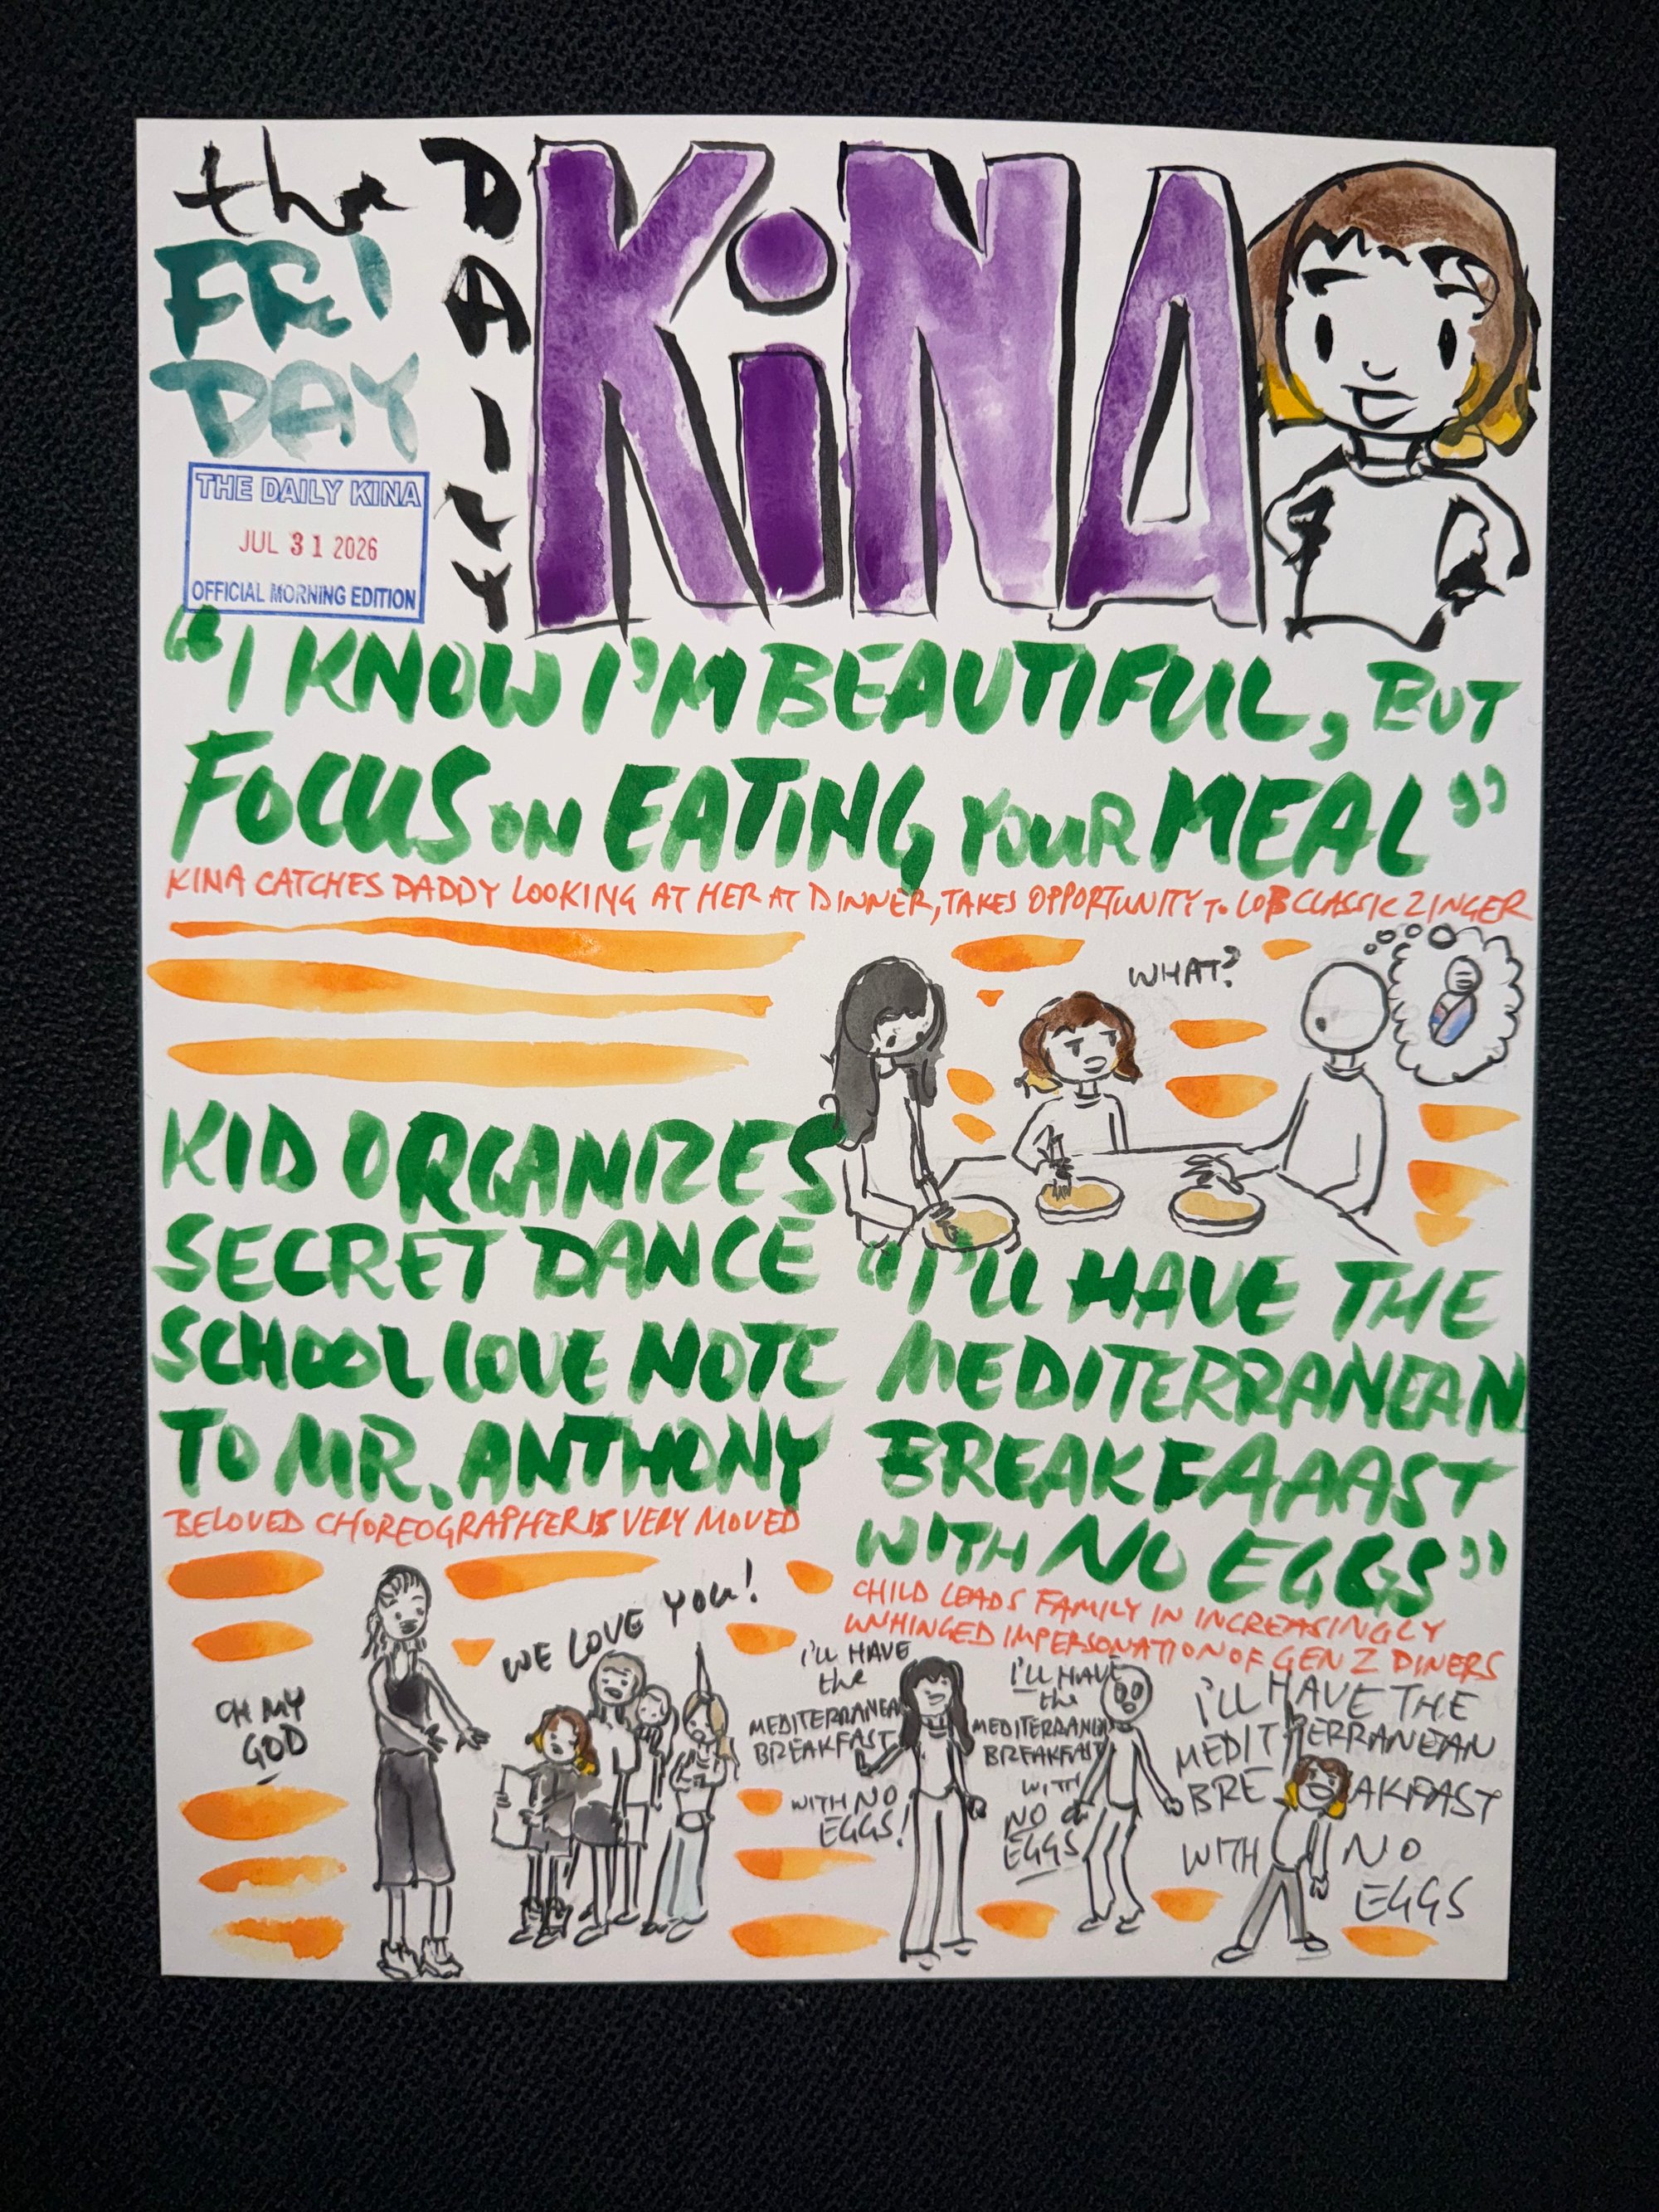 the
FRI
DAY
DAILY
KiNA
THE DAILY KINA
JUL 31 2026
OFFICIAL MORNING EDITION
"I KNOW I'M BEAUTIFUL, BUT
FOCUS ON EATING YOUR MEAL"
KINA CATCHES DADDY LOOKING AT HER AT DINNER, TAKES OPPORTUNITY TO LOB CLASSIC ZINGER
WHAT?
KID ORGANIZES
SECRET DANCE
SCHOOL LOVE NOTE
TO MR. ANTHONY
BELOVED CHOREOGRAPHER IS VERY MOVED
OH MY
GOD
WE LOVE YOU!
"I'LL HAVE THE
MEDITERRANEAN
BREAKFAAAST
WITH NO EGGS"
CHILD LEADS FAMILY IN INCREASINGLY
UNHINGED IMPERSONATION OF GEN Z DINERS
I'LL HAVE
the
MEDITERRANEAN
BREAKFAST
WITH NO
EGGS!
I'LL HAVE
the
MEDITERRANEAN
BREAKFAST
WITH
NO
EGGS
I'LL HAVE THE
MEDITERRANEAN
BREAKFAST
WITH NO
EGGS